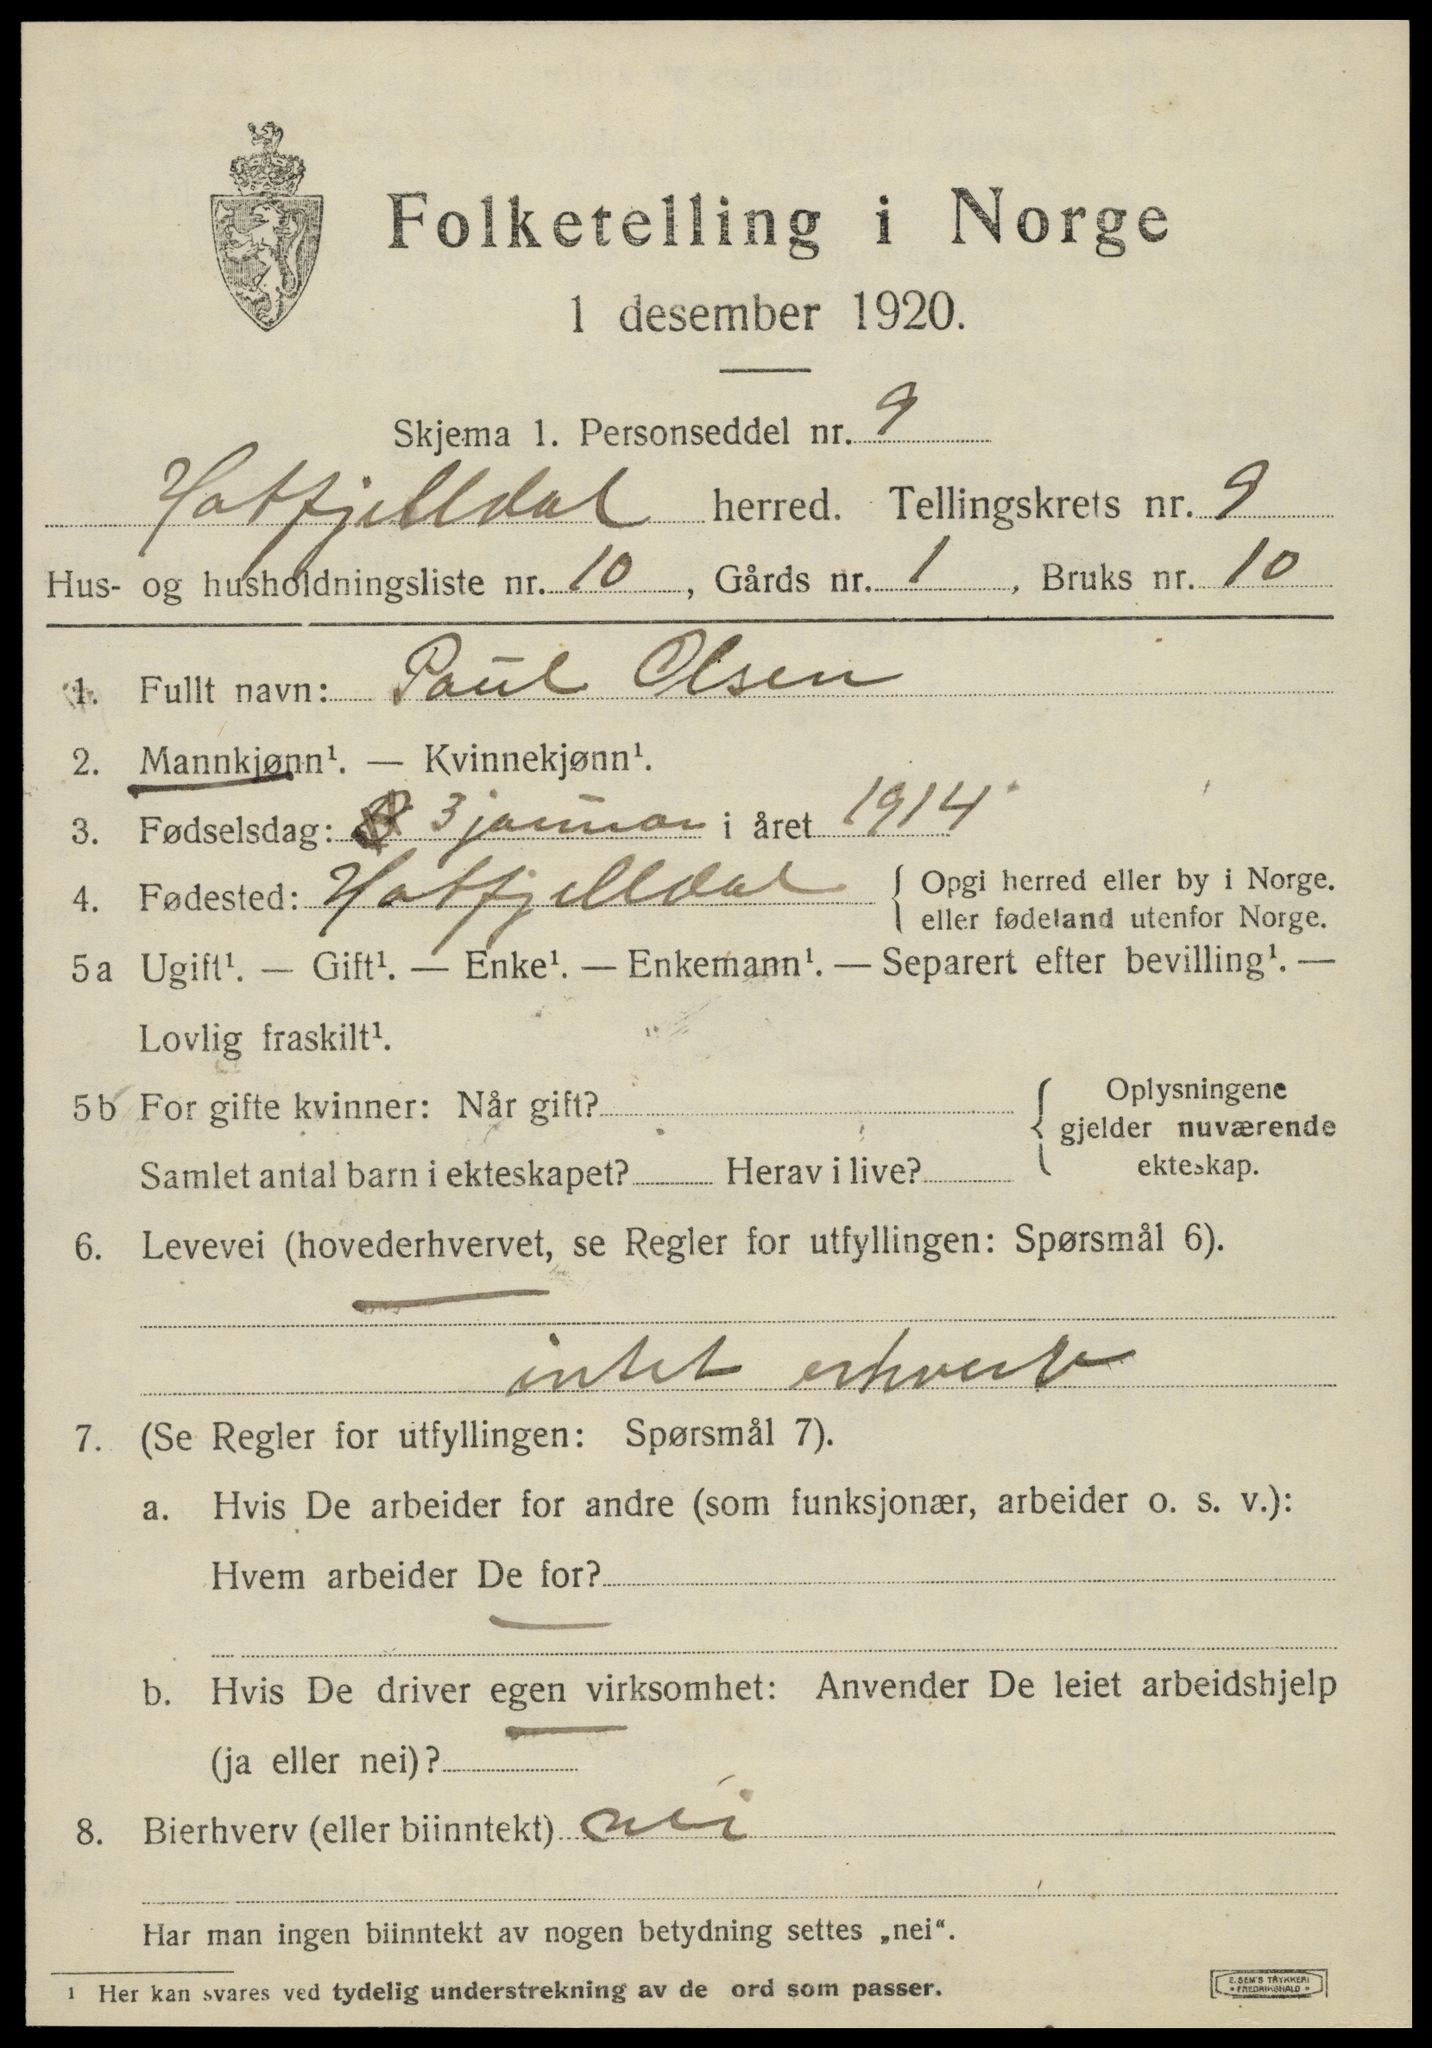 Folketelling i Norge
1 desember 1920.
Skjema 1. Personseddel nr. 9
Hatfjelldal herred. Tellingskrets nr. 9
Hus- og husholdningsliste nr. 10, Gårds nr. 1, Bruks nr. 10
1. Fullt navn: Paul Olsen
2. Mannkjønn¹. — Kvinnekjønn¹.
3. Fødselsdag: 3 januar i året 1914
4. Fødested: Hatfjelldal
Opgi herred eller by i Norge.
eller fødeland utenfor Norge.
5a Ugift¹. — Gift¹. — Enke¹. — Enkemann¹. — Separert efter bevilling¹. —
Lovlig fraskilt¹.
5b For gifte kvinner: Når gift?
Samlet antal barn i ekteskapet? Herav i live?
Oplysningene
gjelder nuværende
ekteskap.
6. Levevei (hovederhvervet, se Regler for utfyllingen: Spørsmål 6).
intet erhverv
7. (Se Regler for utfyllingen: Spørsmål 7).
a. Hvis De arbeider for andre (som funksjonær, arbeider o. s. v.):
Hvem arbeider De for?
b. Hvis De driver egen virksomhet: Anvender De leiet arbeidshjelp
(ja eller nei)?
8. Bierhverv (eller biinntekt) nei
Har man ingen biinntekt av nogen betydning settes „nei“.
¹ Her kan svares ved tydelig understrekning av de ord som passer.
E. SEM'S TRYKKERI
FREDRIKSHALD